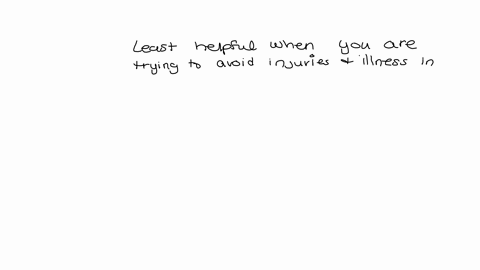 Least helpful when you are
trying to avoid injuries & illness in